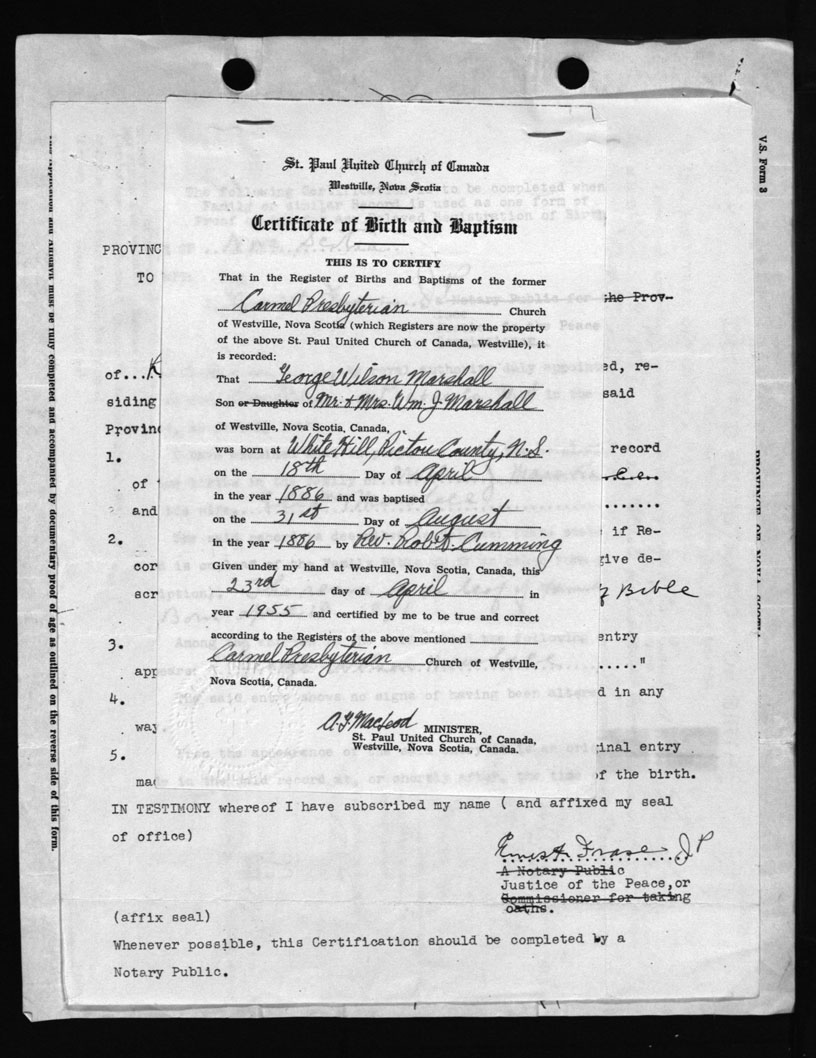 V.S. Form 3
St. Paul United Church of Canada
Westville, Nova Scotia
Certificate of Birth and Baptism
THIS IS TO CERTIFY
That in the Register of Births and Baptisms of the former
Carmel Presbyterian Church
of Westville, Nova Scotia (which Registers are now the property
of the above St. Paul United Church of Canada, Westville), it
is recorded:
That George Wilson Marshall
Son or Daughter of Mr. & Mrs. Wm. J. Marshall
of Westville, Nova Scotia, Canada,
was born at White Hill, Pictou County, N.S.
on the 18th Day of April
in the year 1886 and was baptised
on the 31st Day of August
in the year 1886 by Rev. Robt. Cumming
Given under my hand at Westville, Nova Scotia, Canada, this
23rd day of April in
year 1955 and certified by me to be true and correct
according to the Registers of the above mentioned
Carmel Presbyterian Church of Westville,
Nova Scotia, Canada.
MINISTER,
St. Paul United Church of Canada,
Westville, Nova Scotia, Canada.
PROVINC
TO the Prov-
of...K ed, re-
siding said
Provin
1. record
of
and
2. if Re-
cor give de-
scr Bible
3. entry
app ....."
4. d in any
way.
5. inal entry
mad of the birth.
IN TESTIMONY whereof I have subscribed my name ( and affixed my seal
of office)
Ernest Fraser J P
A Notary Public
Justice of the Peace, or
Commissioner for taking
oaths.
(affix seal)
Whenever possible, this Certification should be completed by a
Notary Public.
and Affidavit must be fully completed and accompanied by documentary proof of age as outlined on the reverse side of this form.